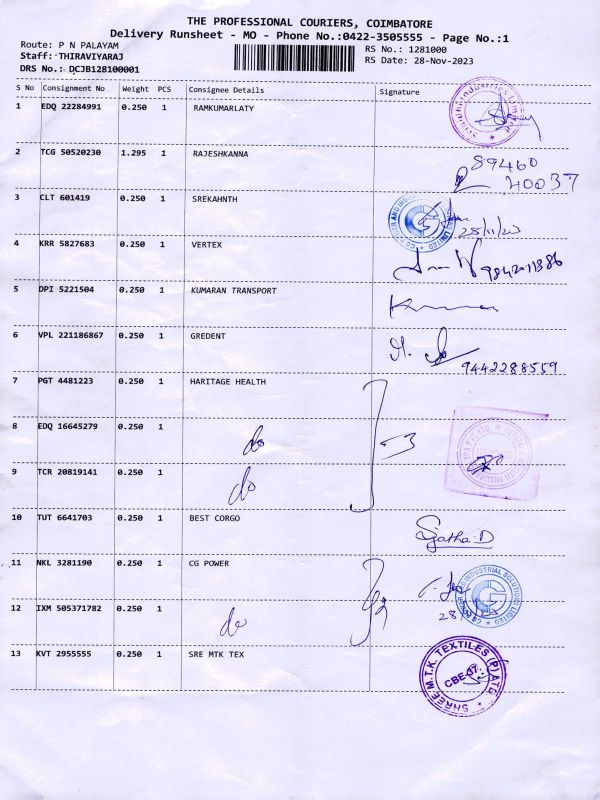 THE PROFESSIONAL COURIERS, COIMBATORE
Delivery Runsheet - MO - Phone No.:0422-3505555 - Page No.:1
Route: P N PALAYAM
RS No.: 1281000
Staff: THIRAVIYARAJ
RS Date: 28-Nov-2023
DRS No.: DCJB128100001
S No Consignment No Weight PCS Consignee Details Signature
1 EDQ 22284991 0.250 1 RAMKUMARLATY
2 TCG 50520230 1.295 1 RAJESHKANNA
89460
40037
3 CLT 601419 0.250 1 SREKAHNTH
28/11/23
4 KRR 5827683 0.250 1 VERTEX
9842011386
5 DPI 5221504 0.250 1 KUMARAN TRANSPORT
6 VPL 221186867 0.250 1 GREDENT
9442288559
7 PGT 4481223 0.250 1 HARITAGE HEALTH
8 EDQ 16645279 0.250 1 do
3
9 TCR 20819141 0.250 1 do
10 TUT 6641703 0.250 1 BEST CORGO
11 NKL 3281190 0.250 1 CG POWER
CG POWER AND INDUSTRIAL SOLUTIONS LIMITED
12 IXM 505371782 0.250 1 do
28
13 KVT 2955555 0.250 1 SRE MTK TEX
SHREE M.T.K. TEXTILES (P) LTD.
CBE-37.